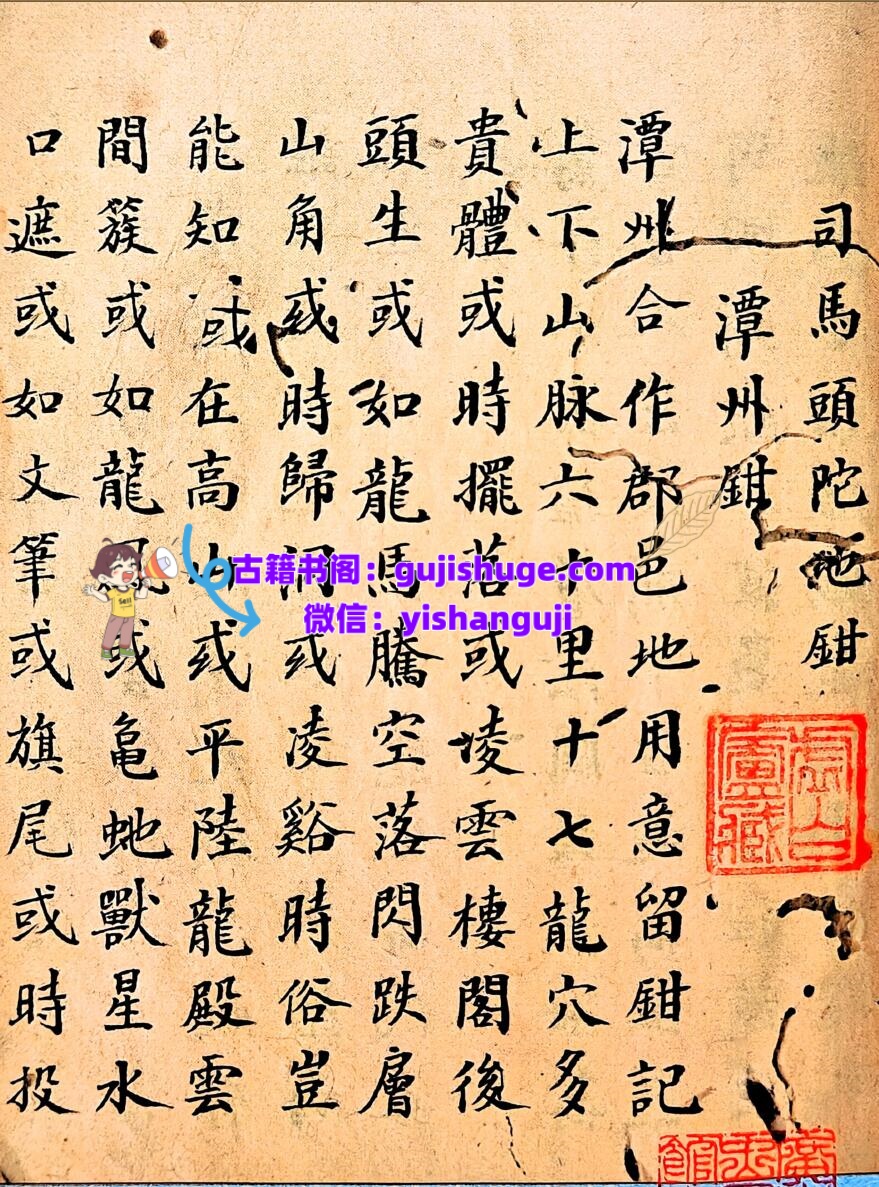 司馬頭陀地鉗
潭州鉗
潭州合作郡邑地用意留鉗記
上下山脉六十里十七龍穴多
貴體或時擺落或堎雲樓閣後
頭生或如龍馬騰空落閃跌層
山角或時歸洞或凌谿時俗豈
能知或在高山或平陸龍殿雲
間簇或如龍 或龜虵獸星水
口遮或如文筆或旗尾或時投
古籍书阁：gujishuge.com
微信：yishanguji
Sell